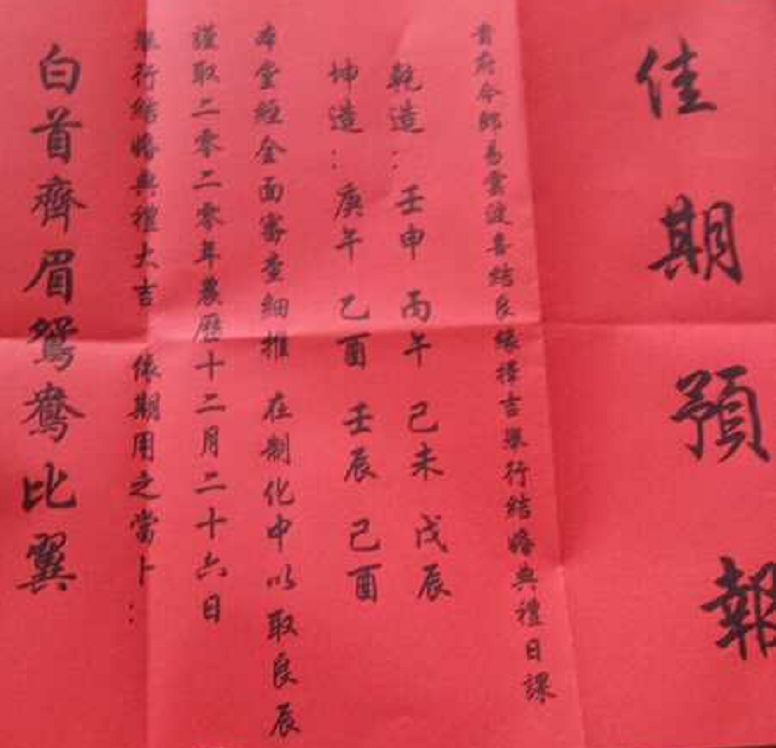 佳期預報
貴府令郎易雲波喜結良緣擇吉舉行結婚典禮日課
乾造：壬申 丙午 己未 戊辰
坤造：庚午 乙酉 壬辰 己酉
本堂經全面審查細推 在制化中以取良辰
謹取二零二零年農歷十二月二十六日
舉行結婚典禮大吉 依期用之當卜：
白首齊眉鴛鴦比翼